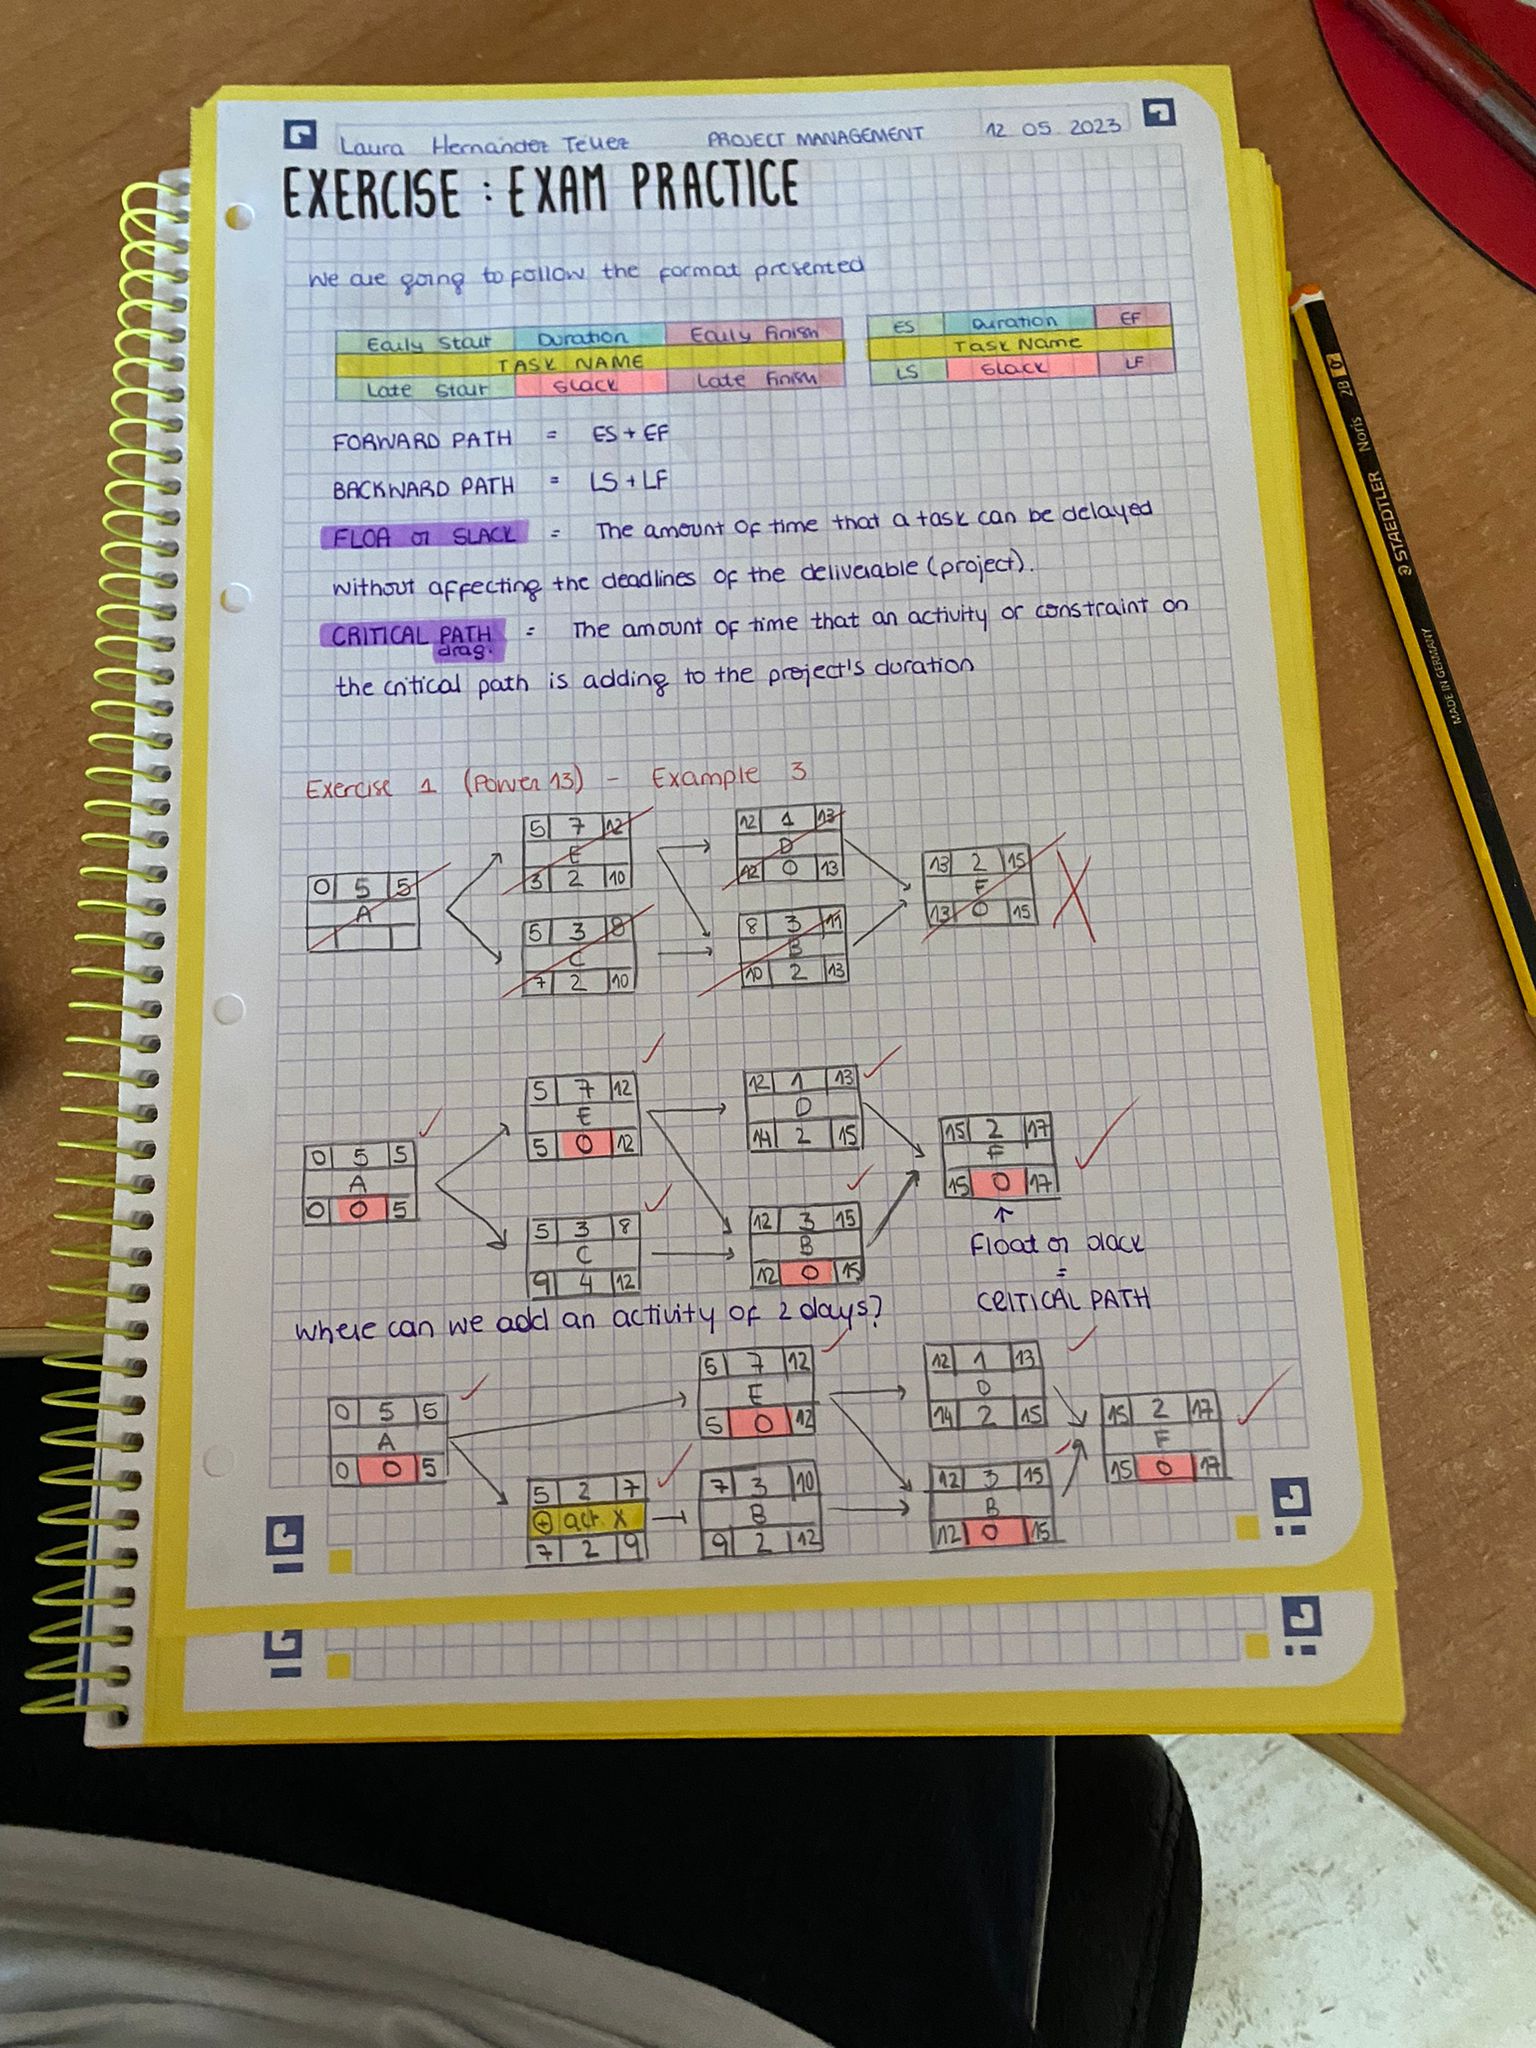 Laura Hernández Téllez PROJECT MANAGEMENT 12 05 2023
EXERCISE : EXAM PRACTICE
We are going to follow the format presented
Early Start Duration Early Finish
TASK NAME
Late Start Slack Late Finish
ES Duration EF
Task Name
LS Slack LF
FORWARD PATH = ES + EF
BACKWARD PATH = LS + LF
FLOA or SLACK = The amount of time that a task can be delayed
without affecting the deadlines of the deliverable (project).
CRITICAL PATH = The amount of time that an activity or constraint on
drag.
the critical path is adding to the project's duration
Exercise 1 (Power 13) - Example 3
0 5 5
A
5 7 12
E
3 2 10
5 3 8
C
7 2 10
12 1 13
D
12 0 13
8 3 11
B
10 2 13
13 2 15
F
13 0 15
X
0 5 5
A
0 0 5
5 7 12
E
5 0 12
5 3 8
C
9 4 12
12 1 13
D
14 2 15
12 3 15
B
12 0 15
15 2 17
F
15 0 17
Float or slack
=
CRITICAL PATH
Where can we add an activity of 2 days?
0 5 5
A
0 0 5
5 7 12
E
5 0 12
5 2 7
+ act. X
7 2 9
7 3 10
B
9 2 12
12 1 13
D
14 2 15
12 3 15
B
12 0 15
15 2 17
F
15 0 17
STAEDTLER Noris 2B
MADE IN GERMANY